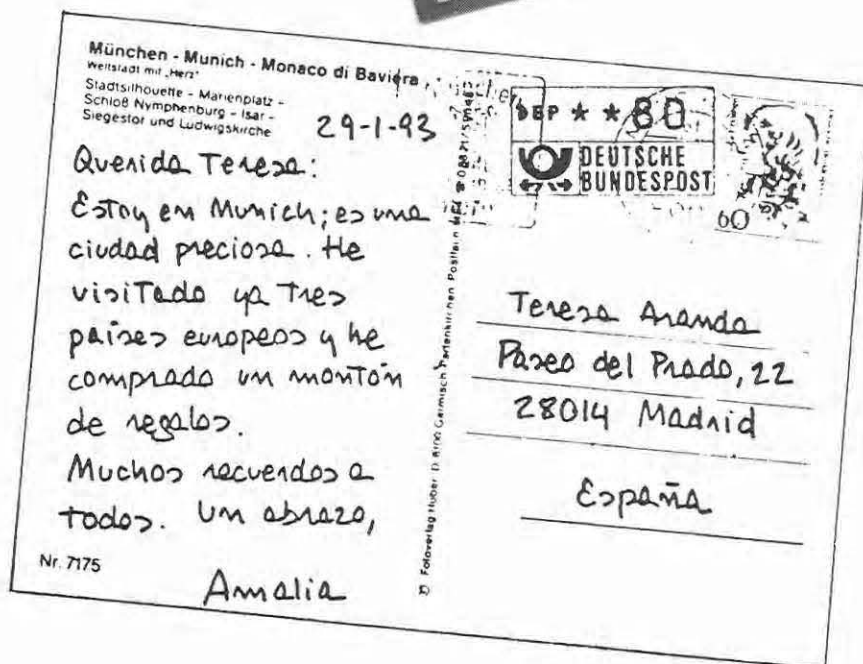 München - Munich - Monaco di Baviera
Weltstadt mit „Herz"
Stadtsilhouette - Marienplatz -
Schloß Nymphenburg - Isar -
Siegestor und Ludwigskirche
29-1-93
Querida Teresa:
Estoy en Munich; es una
ciudad preciosa. He
visitado ya tres
países europeos y he
comprado un montón
de regalos.
Muchos recuerdos a
todos. Un abrazo,
Amalia
Nr. 7175
© Fotoverlag Huber Garmisch-Partenkirchen Postfach
DBP * * 80
DEUTSCHE
BUNDESPOST
60
Teresa Aranda
Paseo del Prado, 22
28014 Madrid
España